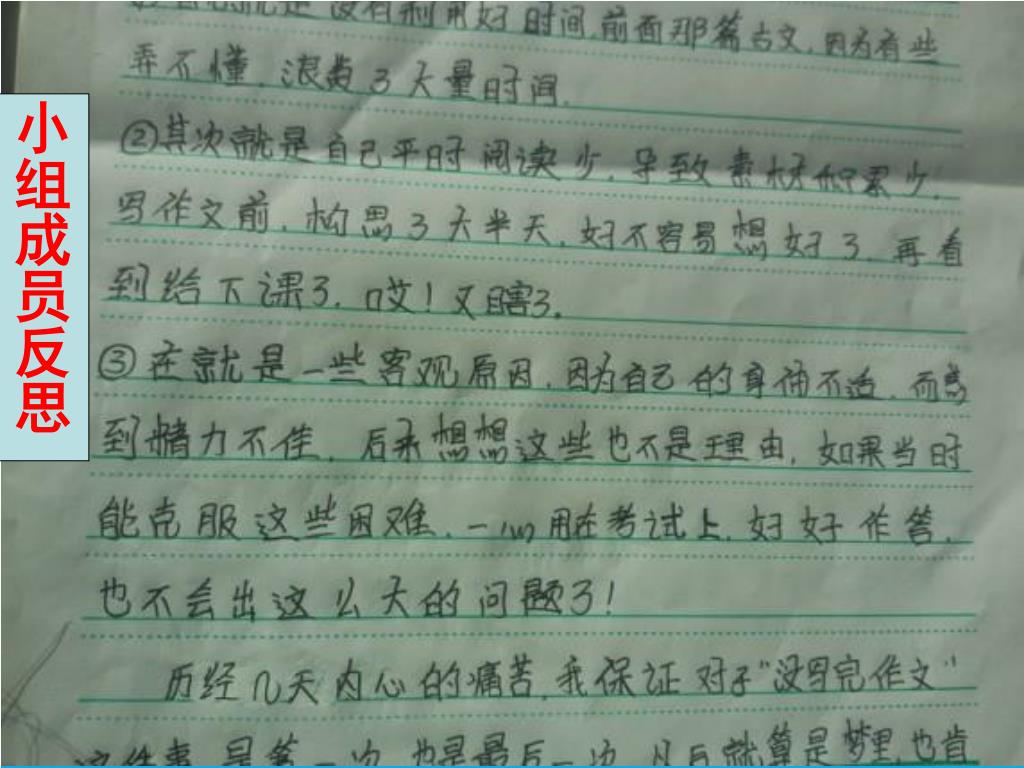 小组成员反思
就是没有利用好时间,前面那篇古文,因为有些
弄不懂,浪费了大量时间.
②其次就是自己平时阅读少,导致素材积累少,
写作文前,构思了大半天,好不容易想好了,再看
到给下课了,哎!又瞎了。
③在就是一些客观原因,因为自己的身体不适,而感
到精力不佳,后来想想这些也不是理由,如果当时
能克服这些困难,一心用在考试上,好好作答,
也不会出这么大的问题了!
历经几天内心的痛苦,我保证对于“没写完作文”
这件事,是第一次,也是最后一次,以后就算是梦里,也肯